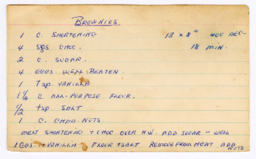 BROWNIES
1 C. SHORTENING 12 x 8" 400 DEG.
4 SQS CHOC. 18 MIN.
2 C. SUGAR.
4 EGGS. WELL BEATEN
1 tsp. VANILLA
1 1/2 C ALL-PURPOSE FLOUR.
1/2 tsp. SALT
1 C. CHPD. NUTS
MELT SHORTENING & CHOC OVER H.W. ADD SUGAR - WELL
EGGS - VANILLA FLOUR & SALT REMOVE FROM HEAT ADD
NUTS